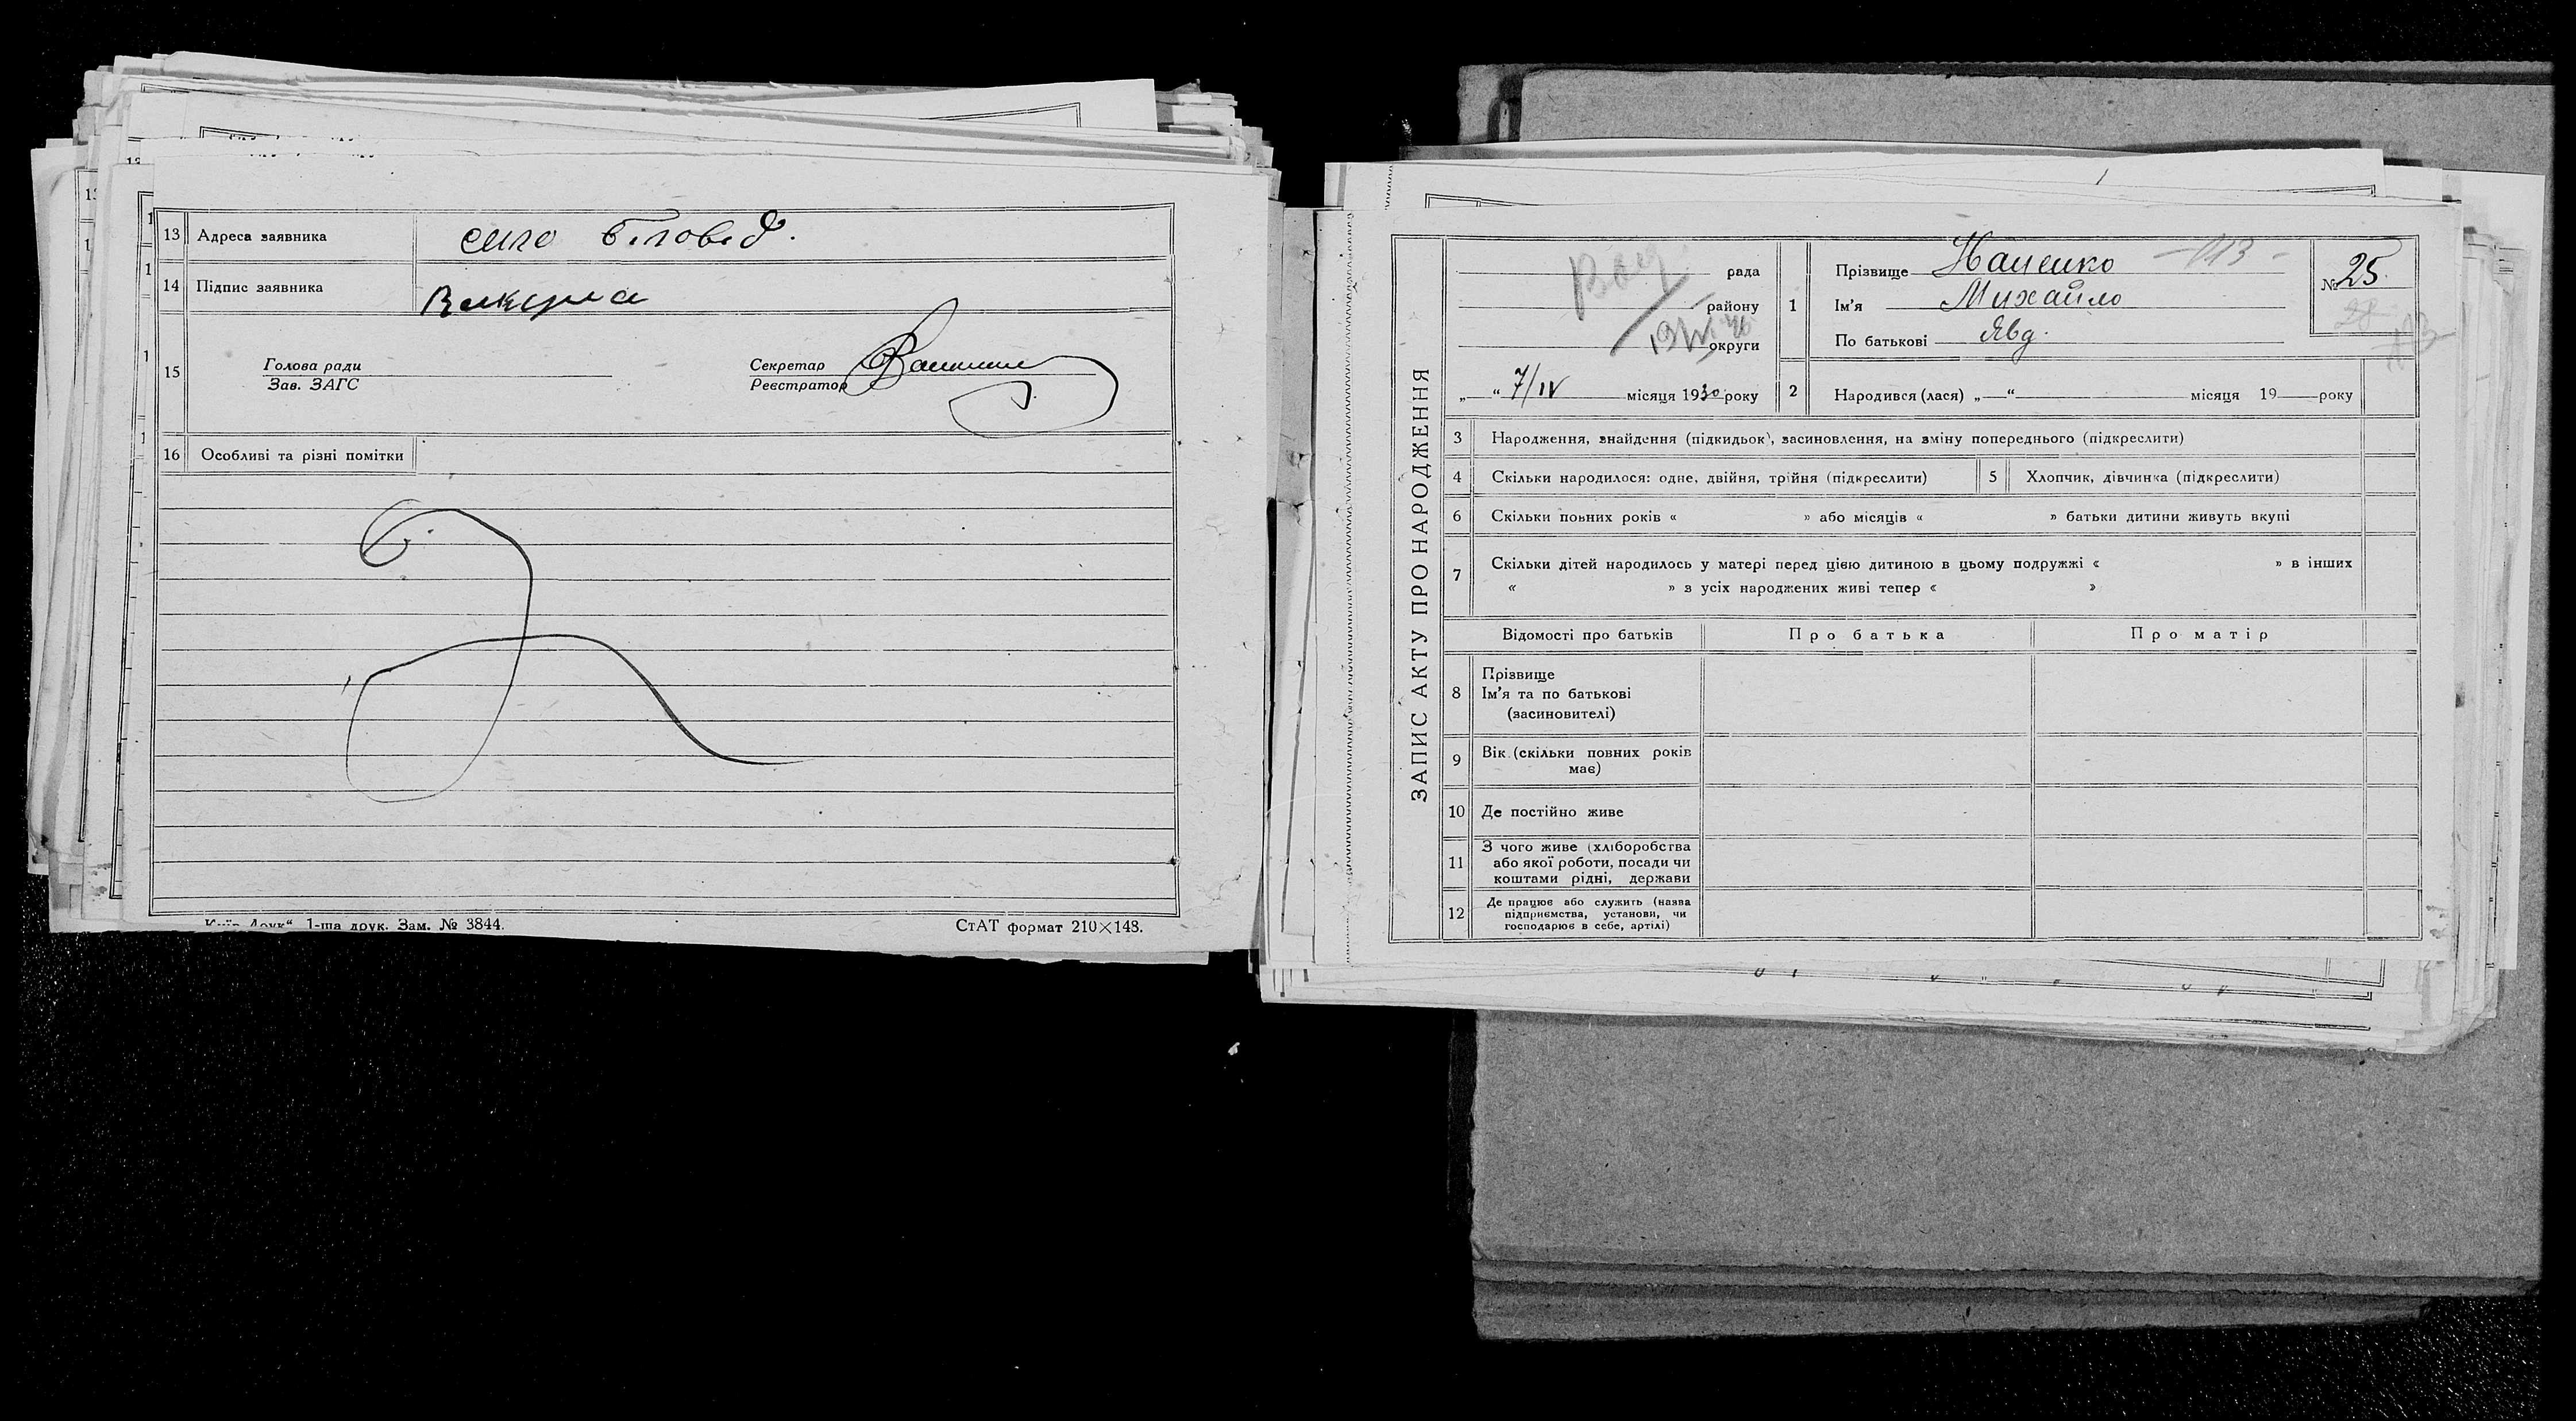 13 Адреса заявника село Біловод.
14 Підпис заявника
15 Голова ради
Зав. ЗАГС
Секретар
Реєстратор
16 Особливі та різні помітки
Друк“ 1-ша друк. Зам. № 3844.
СтАТ формат 210×148.
ЗАПИС АКТУ ПРО НАРОДЖЕННЯ
рада
району
округи
„ “ 7/IV місяця 1930 року
1 Прізвище -113-
Ім'я Михайло
По батькові Явд.
№ 25.
2 Народився (лася) „ “ місяця 19 року
3 Народження, знайдення (підкидьок), засиновлення, на зміну попереднього (підкреслити)
4 Скільки народилося: одне, двійня, трійня (підкреслити)
5 Хлопчик, дівчинка (підкреслити)
6 Скільки повних років « » або місяців « » батьки дитини живуть вкупі
7 Скільки дітей народилось у матері перед цією дитиною в цьому подружжі « » в інших
« » з усіх народжених живі тепер « »
Відомості про батьків Про батька Про матір
8 Прізвище
Ім'я та по батькові
(засиновителі)
9 Вік (скільки повних років
має)
10 Де постійно живе
11 З чого живе (хліборобства
або якої роботи, посади чи
коштами рідні, держави
12 Де працює або служить (назва
підприємства, установи, чи
господарює в себе, артілі)